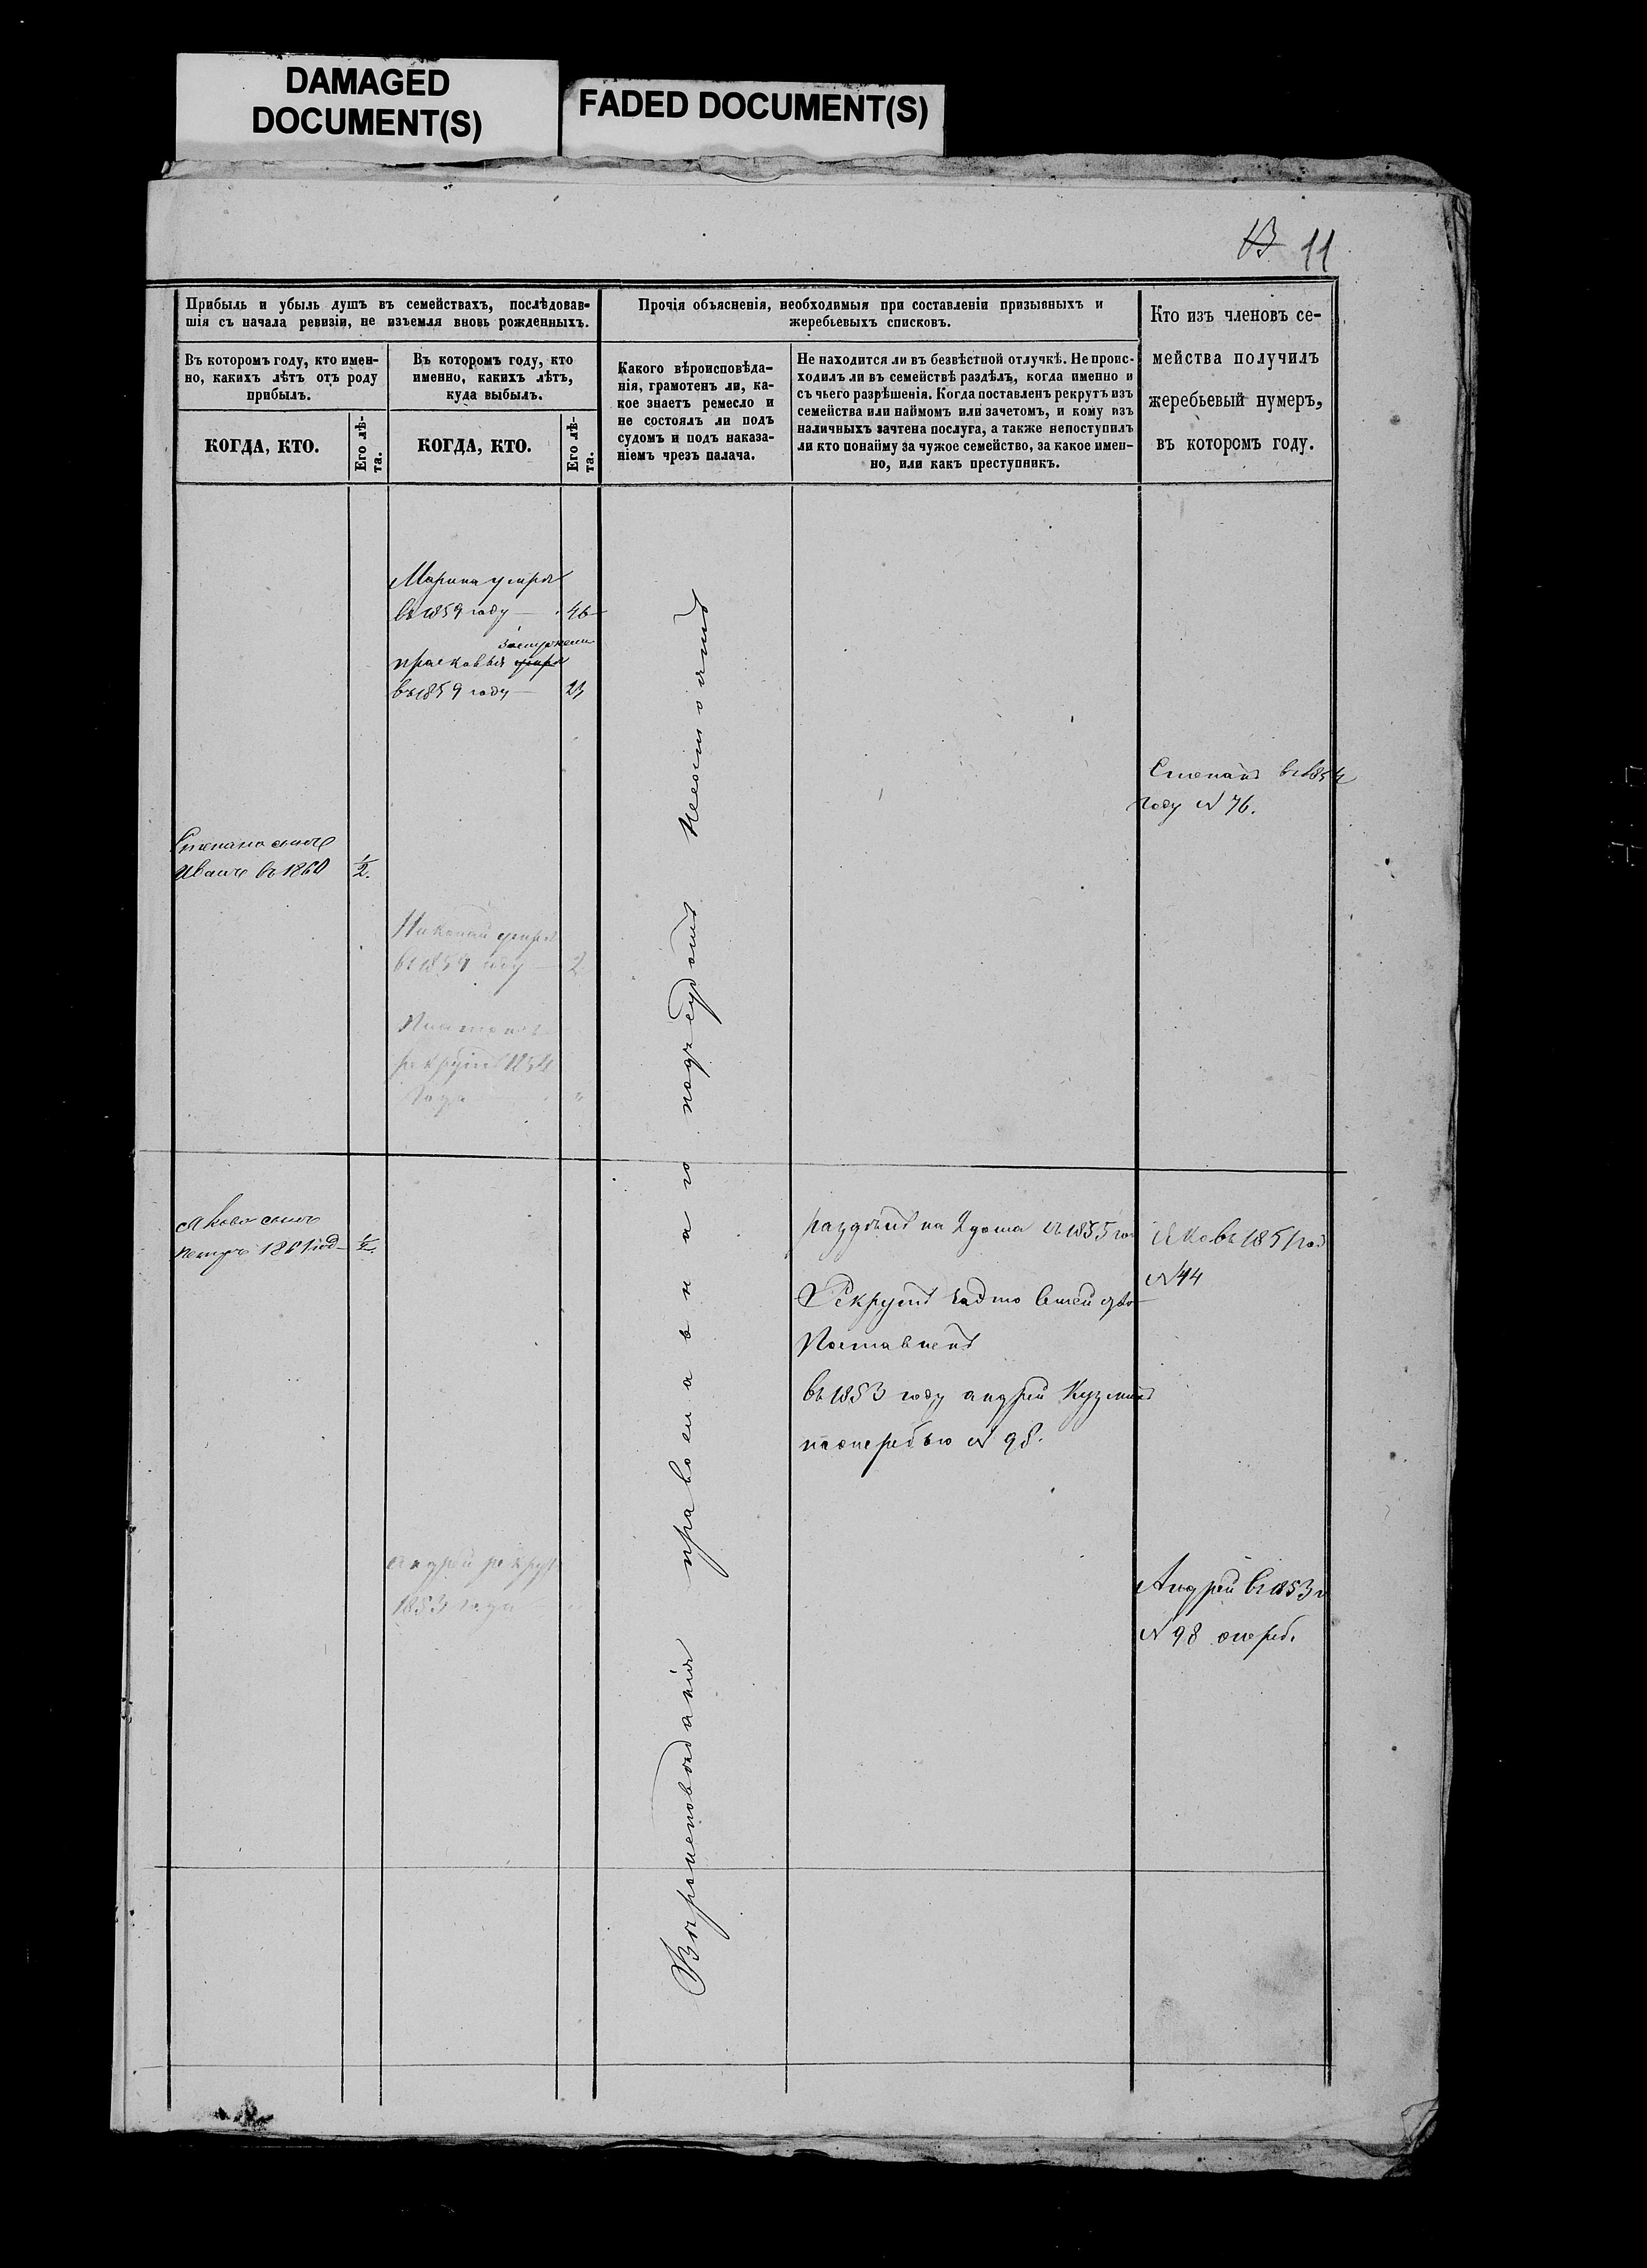 DAMAGED
DOCUMENT(S)
FADED DOCUMENT(S)
13 11
Прибыль и убыль душъ въ семействахъ, послѣдовав-
шія съ начала ревизіи, не изъемля вновь рожденныхъ.
Прочія объясненія, необходимыя при составленіи призывныхъ и
жеребьевыхъ списковъ.
Кто изъ членовъ се-
мейства получилъ
жеребьевый нумеръ,
въ которомъ году.
Въ которомъ году, кто имен-
но, какихъ лѣтъ отъ роду
прибылъ.
Въ которомъ году, кто
именно, какихъ лѣтъ,
куда выбылъ.
Какого вѣроисповѣда-
нія, грамотенъ ли, ка-
кое знаетъ ремесло и
не состоялъ ли подъ
судомъ и подъ наказа-
ніемъ чрезъ палача.
Не находится ли въ безвѣстной отлучкѣ. Не проис-
ходилъ ли въ семействѣ раздѣлъ, когда именно и
съ чьего разрѣшенія. Когда поставленъ рекрутъ изъ
семейства или наймомъ или зачетомъ, и кому изъ
наличныхъ зачтена послуга, а также непоступилъ
ли кто понайму за чужое семейство, за какое имен-
но, или какъ преступникъ.
КОГДА, КТО.
Его лѣ-
та.
КОГДА, КТО.
Его лѣ-
та.
Марина умрла
въ 1859 году — 46
замужем
прасковья умрла
въ 1859 году — 23
Степанъ въ 1854
году № 76.
Степана сынъ
Иванъ въ 1860 1/2.
Николай умръ
въ 1859 году — 2
Платонъ
рекрутъ 1854
года "
Якова сынъ
петръ 1861 год 1/2
раздѣлъ на 2 дома въ 1855 го
Рекрутъ
Поставленъ
въ 1853 году андрей Кузминъ
поочередью № 98.
Яковъ 1851 год
№ 44
андрей рекрут
1853 года
Андрей въ 1853 г
№ 98 очеред.
Вѣроисповѣданія православнаго подъ судомъ несостоятъ